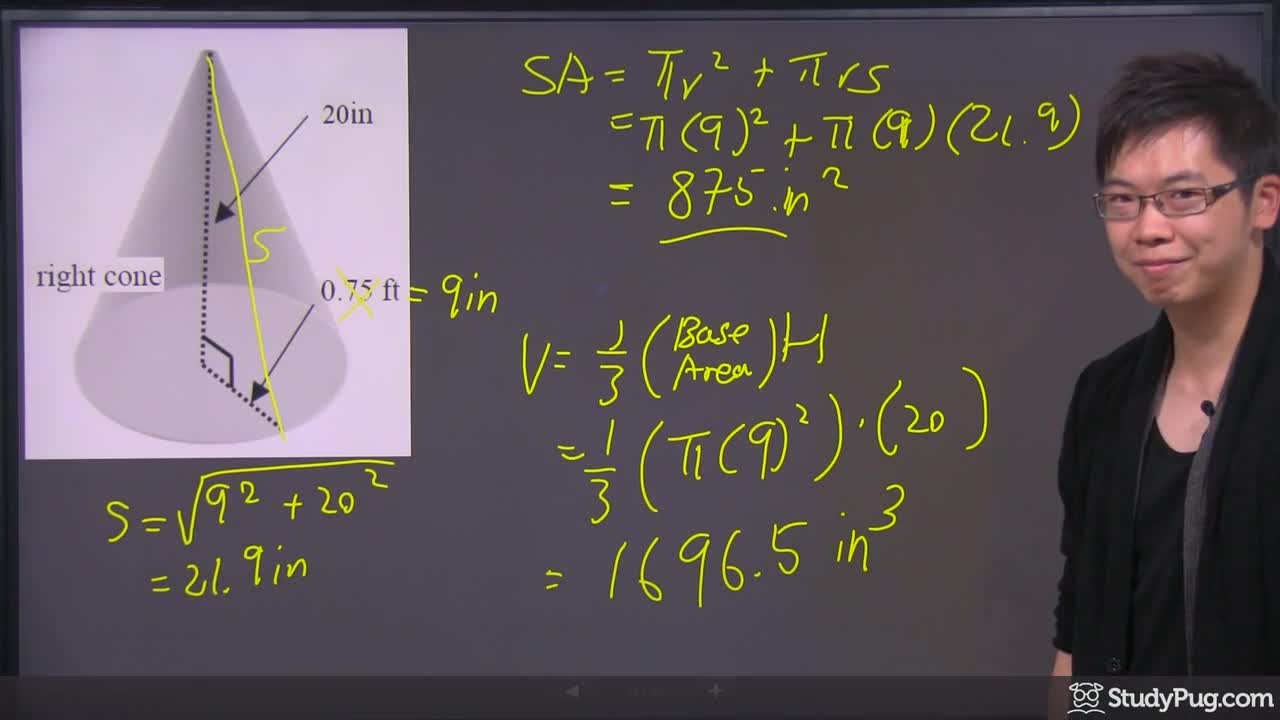 20in
right cone
0.75 ft = 9in
S
S = √(9² + 20²)
= 21.9in
SA = πr² + πrs
= π(9)² + π(9)(21.9)
= 875 in²
V = 1/3 (Base Area) H
= 1/3 (π(9)²) · (20)
= 1696.5 in³
StudyPug.com